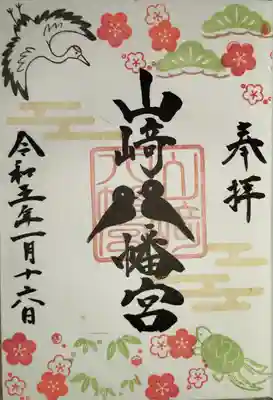 奉拝
山崎八幡宮
令和五年一月十六日